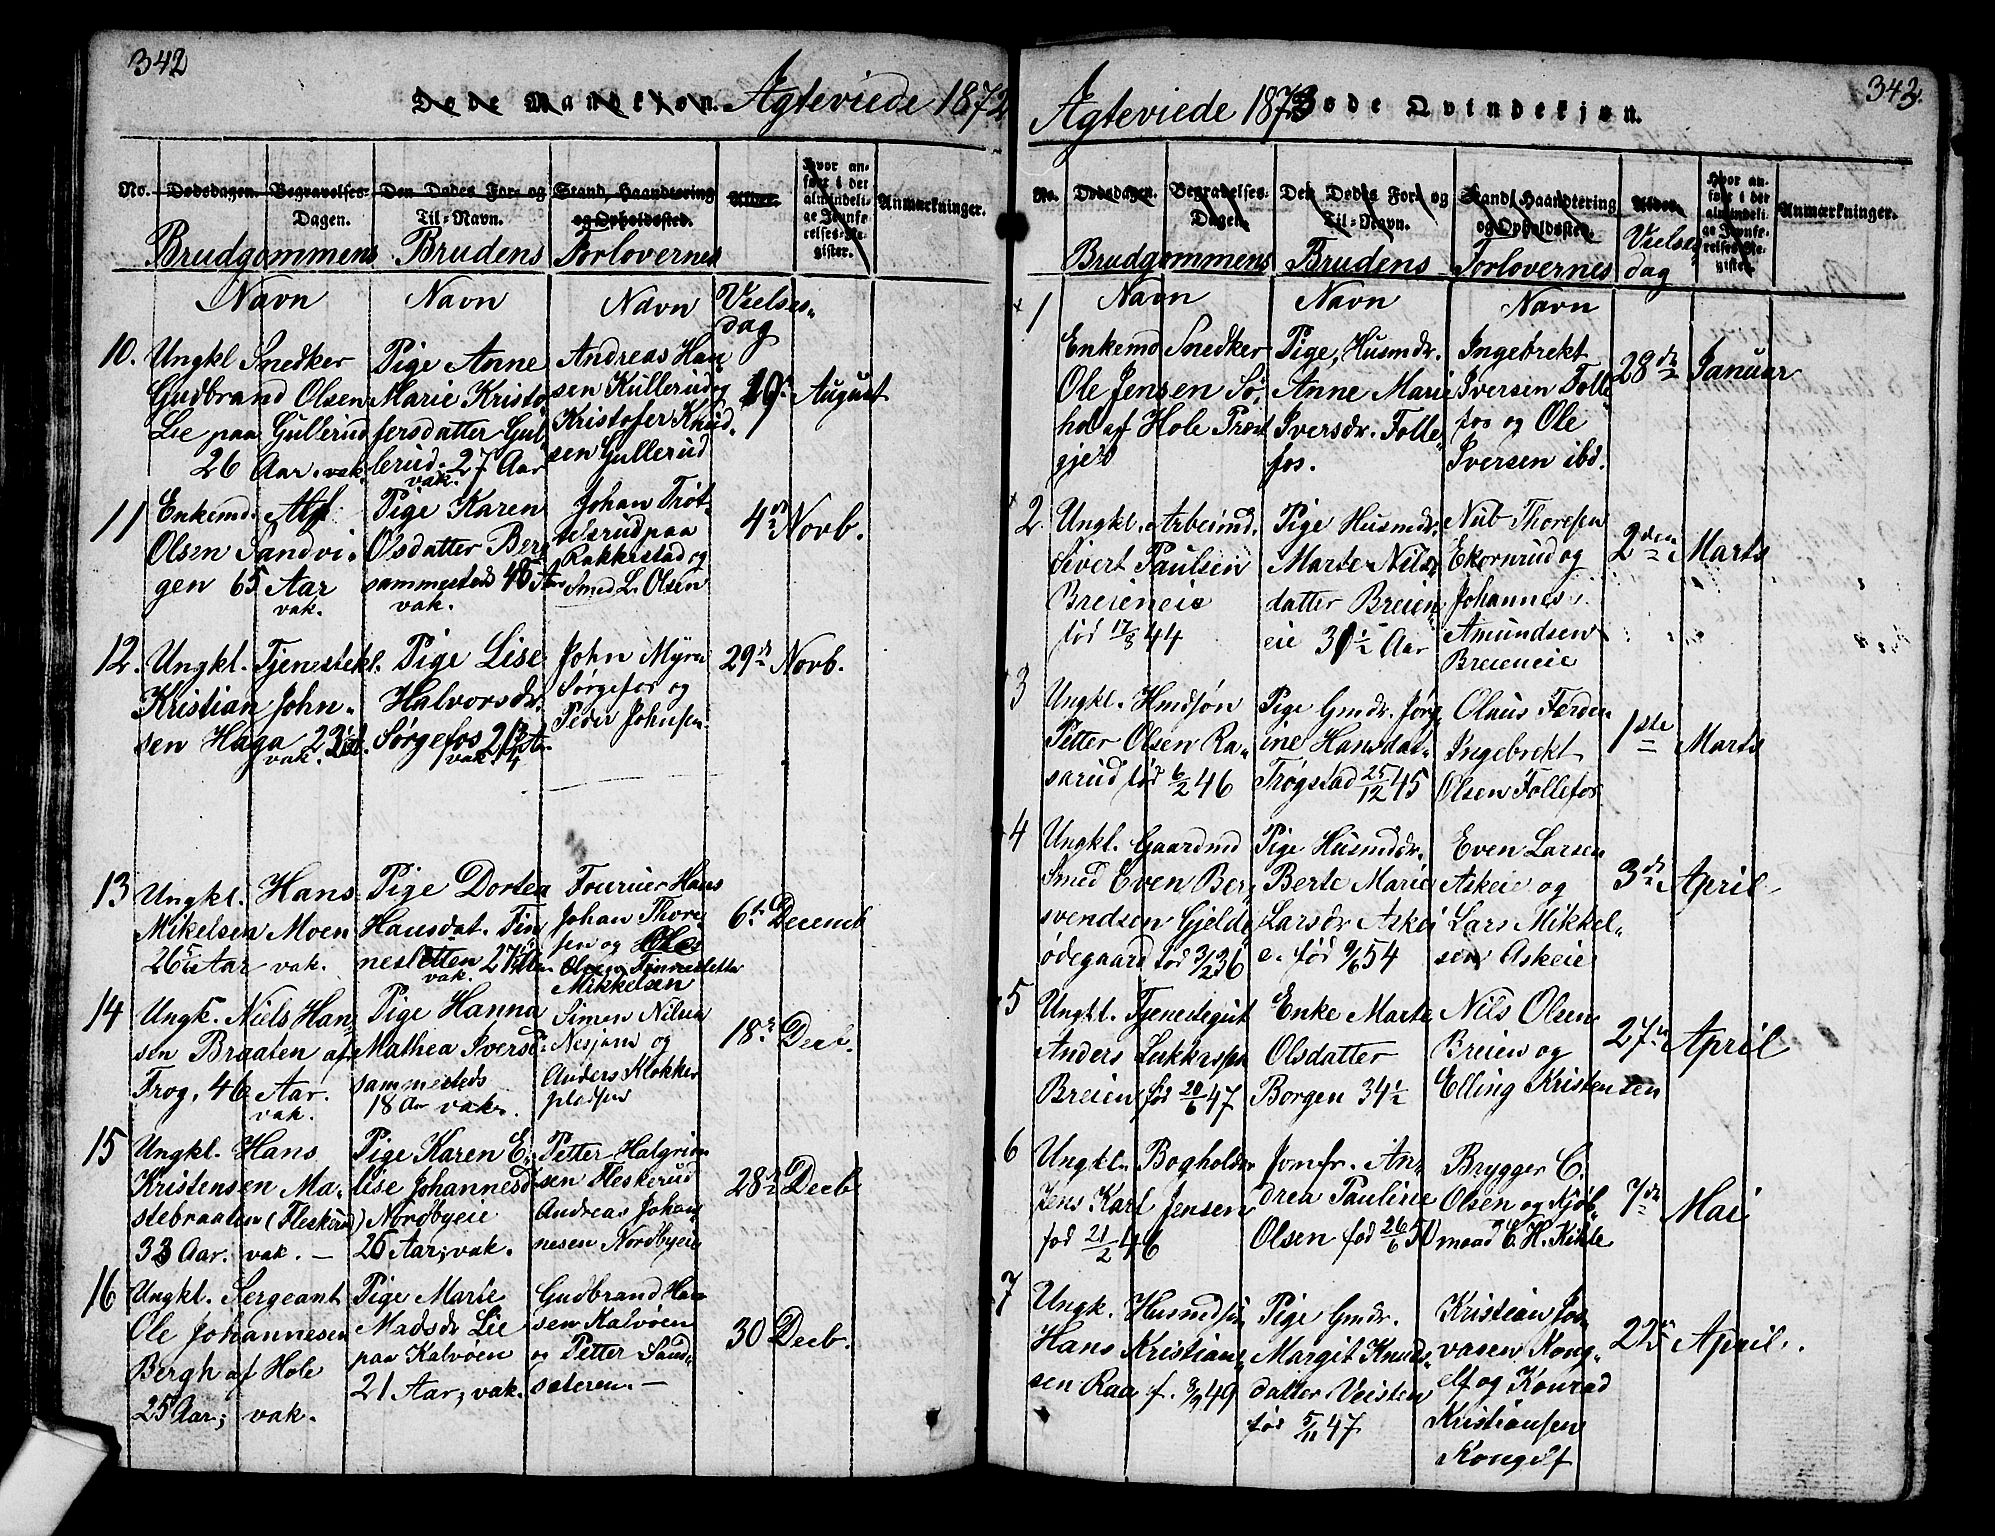 342
Døde Mandkjøn. Ægteviede 1872
No. Dødsdagen. Begravelses-Dagen. Den Dødes For- og Til-Navn. Stand, Haandtering og Opholdssted. Alder. Hvor anført i det almindelige Jevnførelses-Register. Anmærkninger.
Brudgommens Brudens Forlovernes
Navn Navn Navn Vielses-
dag
10. Ungkl Snedker
Gudbrand Olsen
Lie paa Gullerud
26 Aar. vak.
Pige Anne
Marie Kristo
fersdatter Gul
lerud. 27 Aar
vak.
Andreas Han
sen Kullerud og
Kristofer Knud
sen Gullerud
August
11 Enkemd. Alf
Olsen Sandvi-
gen 65 Aar
vak.
Pige Karen
Olsdatter Berg
sammesteds 45 Aar
vak.
Johan Trøt-
telsrud paa
Rakkestad og
Smed L. Olsen
4de Novb.
12. Ungkl. Tjenestekl.
Kristian John-
sen Haga
vak.
Pige Lise
Halvorsdr.
Sørgefos
vak.
John Myra
Sørgefos og
Peder Johnsen
29de Novb.
13 Ungkl. Hans
Mikelsen Moen
Aar vak.
Pige Dortea
Hansdat. Fin
nesletten
vak.
Fourier Hans
Johan Thore
sen og Ole
Olsen Finnesletta
Mikkelsen
6te Decemb
14 Ungk. Niels Han
sen Braaten af
Trog, 46 Aar.
vak.
Pige Hanna
Mathea Iverse
sammesteds
18 Aar vak.
Simen Nilsen
Nesjam og
Anders Klokker
pladsen
18de Decb.
15 Ungkl. Hans
Kristensen Ma-
stebraaten (Fleskerud)
33 Aar. vak. —
Pige Karen E-
lise Johannesd
Nordbyeie
26 Aar, vak.
Petter Halgrim
sen Fleskerud
Andreas Johan
nesen Nordbyeie
28de Decb
16 Ungkl. Sergeant
Ole Johannesen
Bergh af Hole
25 Aar; vak.
Pige Marie
Madsdr Lie
paa Kalvøen
21 Aar, vak.
Gudbrand Han
sen Kalvøen
og Petter Sand-
sæteren. —
30 Decb.
343.
Ægteviede 1873 Døde Qvindekjøn.
No. Dødsdagen. Begravelses-Dagen. Den Dødes For- og Til-Navn. Stand, Haandtering og Opholdssted. Alder. Hvor anført i det almindelige Jevnførelses-Register. Anmærkninger.
Brudgommens Brudens Forlovernes Vielses
dag
Navn Navn Navn
1
Enkemd Snedker
Ole Jensen Sø-
hol af Hole Præst
gjeld
Pige, Husmdr.
Anne Marie
Iversdr. Folle-
fos.
Ingebrekt
Iversen Folle
fos og Ole
Iversen ibd.
28de Januar
2. Ungkl. Arbeimd.
Sivert Paulsen
Breieneie
født 17/8 44
Pige Husmdr.
Marte Nils-
datter Breien-
eie 31 1/2 Aar
Nub Thoresen
Ekornrud og
Johannes
Amundsen
Breieneie
2den Marts
3 Ungkl. Hmdsøn
Petter Olsen Ra-
sarud født 6/2 46
Pige Gmdr. Jørg
ine Hansdat-
Trøgstad 25/12 45
Olaus Ferden
Ingebrekt
Olsen Follefos
1ste Marts
4 Ungkl. Gaardmd
Smed Even Ber-
svendsen Gjelde
ødegaard født 3/2 36
Pige Husmddr.
Berte Marie
Larsdr Askei
e. født 9/6 54
Even Larsen
Askeie og
Lars Mikkel-
sen Askeie
3de April
5 Ungkl. Tjenedegut
Anders
Breien født 20/6 47
Enke Marte
Olsdatter
Borgen 34 1/2
Nils Olsen
Breien og
Elling Kristensen
27de April
6 Ungkl. Bogholder
Jens Karl Jensen
født 21/2 46
Jomfr. An-
drea Pauline
Olsen født 26/6 50
Brygger C.
Olsen og Kjøb-
mand C. H. Kihle
7de Mai
7 Ungk. Husmdsøn
Hans Kristian-
sen Raa f. 8/9 49
Pige Gmdr.
Margit Knuds-
datter Veisten
født 5/11 47
Kristian Jos
vasen Kong-
elf og Konrad
Kristiansen
Kongelf
22de April.